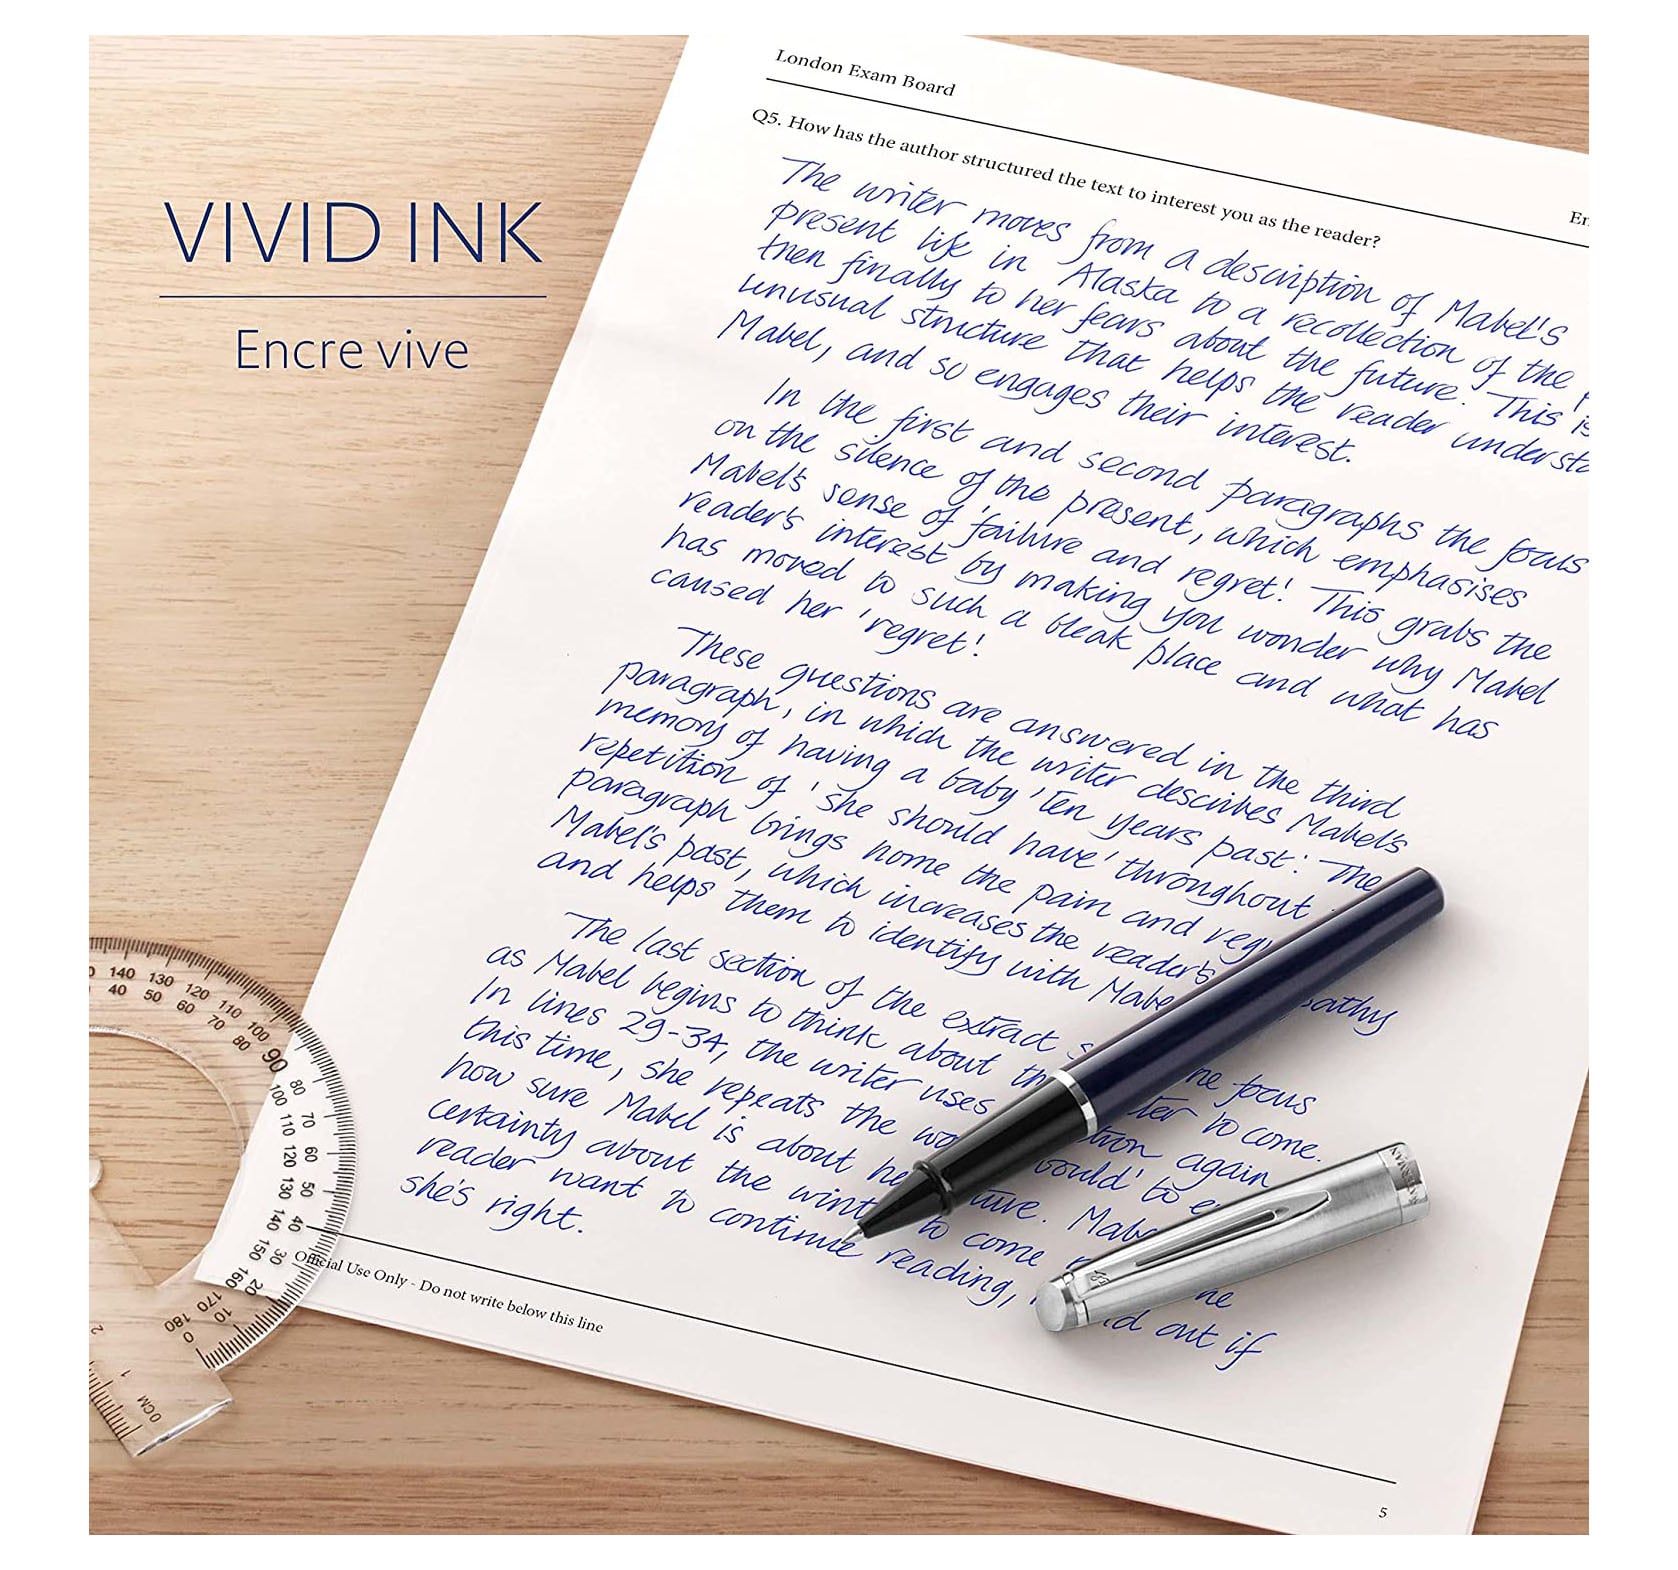 VIVID INK
Encre vive
London Exam Board
En
Q5. How has the author structured the text to interest you as the reader?
The writer moves from a description of Mabel's
present life in Alaska to a recollection of the
then finally to her fears about the future. This is
unusual structure that helps the reader understa
Mabel, and so engages their interest.
In the first and second paragraphs the focus
on the silence of the present, which emphasises
Mabel's sense of 'failure and regret'. This grabs the
reader's interest by making you wonder why Mabel
has moved to such a bleak place and what has
caused her 'regret'.
These questions are answered in the third
paragraph, in which the writer describes Mabel's
memory of having a baby 'ten years past'. The
repetition of 'she should have' throughout
paragraph brings home the pain and reg
Mabel's past, which increases the reader's pathy
and helps them to identify with Mabe
The last section of the extract s he focus
as Mabel begins to think about th ter to come.
In lines 29-34, the writer uses tion again
this time, she repeats the wo would' to e
how sure Mabel is about he ture. Mabe
certainty about the wint to come
reader want to continue reading, ne
she's right. d out if
Official Use Only - Do not write below this line
5
140 130 120 110 100 90 80 70 60 50 40 30 20 10 0
40 50 60 70 80 100 110 120 130 140 150 160 170 180
0CM 1 2
WATERMAN